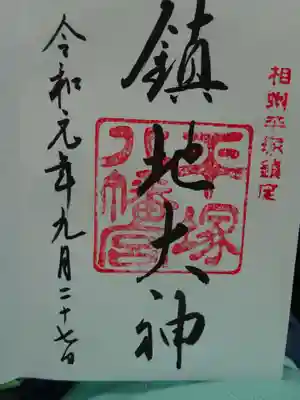 相州平塚鎮座
鎮地大神
平塚
八幡宮
令和元年九月二十七日